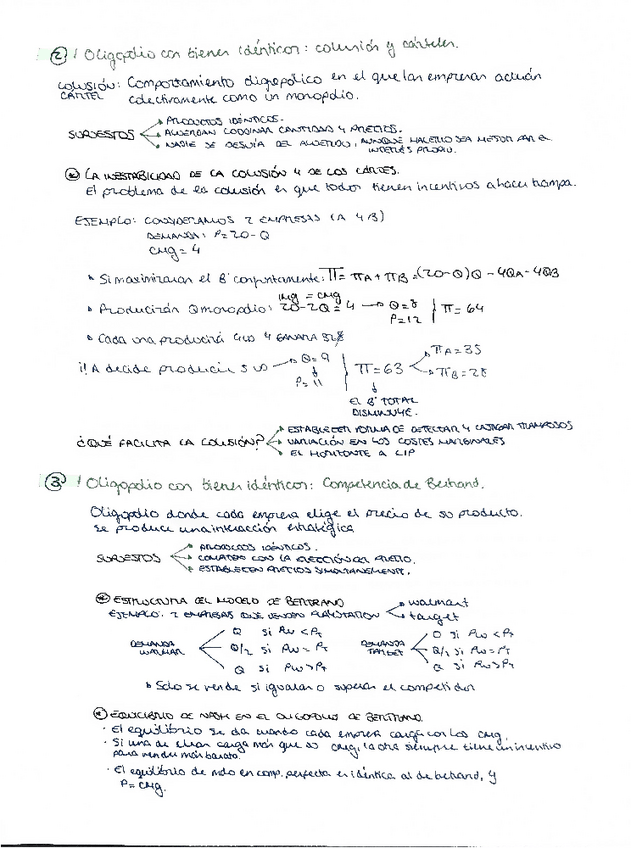 ② ! Oligopolio con bienes idénticos: colusión y cárteles.
COLUSIÓN: Comportamiento oligopólico en el que las empresas actúan
CÁRTEL colectivamente como un monopolio.
SUPUESTOS
PRODUCTOS IDÉNTICOS.
ACUERDAN COORDINAR CANTIDAD Y PRECIOS.
NADIE SE DESVÍA DEL ACUERDO, AUNQUE HACERLO SEA MEJOR PARA EL
INTERÉS PROPIO.
LA INESTABILIDAD DE LA COLUSIÓN Y DE LOS CÁRTELES.
El problema de la colusión es que todos tienen incentivos a hacer trampa.
EJEMPLO: CONSIDERAMOS 2 EMPRESAS (A Y B)
DEMANDA: P=20-Q
CMg=4
Si maximizaran el Bº conjuntamente: π = πA + πB = (20-Q)Q - 4QA - 4QB
IMg = CMg
Producirán Q monopolio: 20-2Q = 4 → Q=8 | π=64
P=12
Cada una producirá 4 uds y ganará 32$
¡! A decide producir 5 uds → Q=9 | π=63
P=11
πA=35
πB=28
EL Bº TOTAL
DISMINUYE.
¿QUÉ FACILITA LA COLUSIÓN?
ESTABLECER FORMA DE DETECTAR Y CASTIGAR TRAMPOSOS
VARIACIÓN EN LOS COSTES MARGINALES
EL HORIZONTE A L/P
③ ! Oligopolio con bienes idénticos: Competencia de Bertrand.
Oligopolio donde cada empresa elige el precio de su producto.
Se produce una interacción estratégica
SUPUESTOS
PRODUCTOS IDÉNTICOS.
COMPITEN CON LA ELECCIÓN DEL PRECIO.
ESTABLECEN PRECIOS SIMULTANEAMENTE.
ESTRUCTURA DEL MODELO DE BERTRAND
EJEMPLO: 2 EMPRESAS QUE VENDEN PLAYSTATION
walmart
target
DEMANDA
WALMAR
Q si Pw < PT
Q/2 si Pw = PT
Q si Pw > PT
DEMANDA
TARGET
0 si Pw < PT
Q/2 si Pw = PT
Q si Pw > PT
Solo se vende si igualan o superan el competidor
EQUILIBRIO DE NASH EN EL OLIGOPOLIO DE BERTRAND
· El equilibrio se da cuando cada empresa carga con los CMg.
· Si una de ellas carga más que su CMg, la otra siempre tiene un incentivo
para vender más barato.
· El equilibrio de mdo en comp. perfecta es idéntica al de betrand, y
P = CMg.